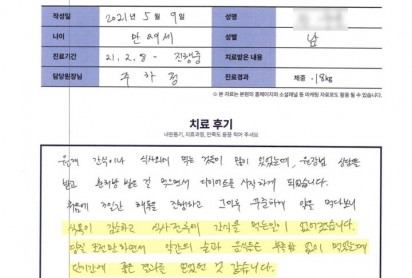 작성일 2021년 5월 9일 성명
나이 만 29세 성별 남
진료기간 21. 2. 8 - 진행중 치료받은 내용
담당원장님 주하정 진료경과 체중 -18kg
※ 본 자료는 본원의 홈페이지와 소셜채널 등 마케팅 자료로도 활용 될 수 있습니다.
치료 후기
내원동기, 치료과정, 만족도 등을 적어 주세요
간식이나 식사외에 먹는 것들이 많이 있었는데, 원장님 상담을
받고 한의원 받은 걸 먹으면서 다이어트를 시작하게 되었습니다.
처음에 7일간 해독을 진행하고 그이후 꾸준하게 약을 먹다보니
식욕이 감소하고 식사전후에 간식을 먹는일이 없어졌습니다.
양식 조절만하면서 약간의 술과 음식은 부족함 없이 먹었는데
단기간에 좋은 결과를 보았던 것 같습니다.